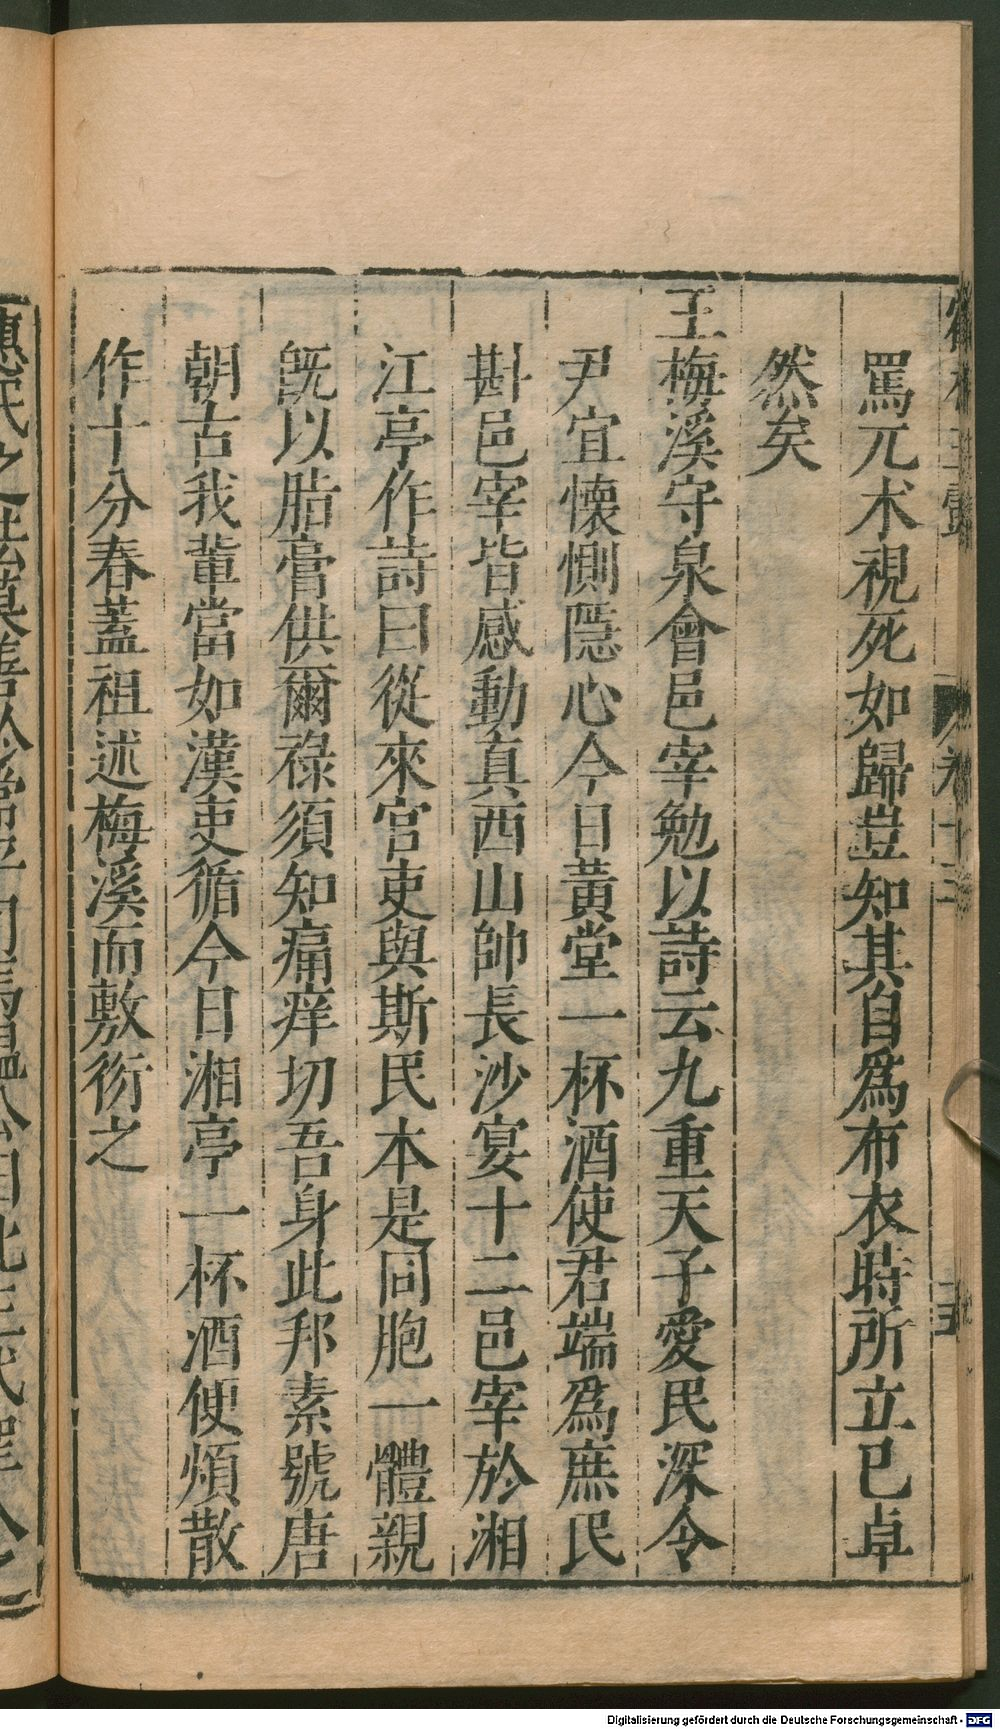 罵元术視死如歸豈知其自爲布衣時所立已卓
然矣
王梅溪守泉會邑宰勉以詩云九重天子愛民深令
尹宜懐惻隱心今日黃堂一杯酒使君端爲庶民
斟邑宰皆感動真西山帥長沙宴十二邑宰於湘
江亭作詩曰從來官吏與斯民本是同胞一體親
旣以脂膏供爾祿須知痛痒切吾身此邦素號唐
朝古我輩當如漢吏循今日湘亭一杯酒便煩散
作十分春蓋祖述梅溪而敷衍之
Digitalisierung gefördert durch die Deutsche Forschungsgemeinschaft - DFG